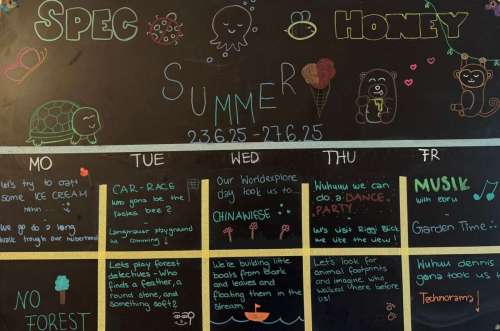 SPEC HONEY
SUMMER
23.6.25 - 27.6.25
MO TUE WED THU FR
Let's try to craft
some ICE CREAM
mhh...
We go do a long
walk trough our
CAR-RACE
who gona be the
fastes bee?
playground
is comming!
Our Worldexplore
day took us to...
CHINAWIESE
Wuhuuu we can
do a DANCE
PARTY
Let's visit Riggi Blick
we like the view!
MUSIK
with ebru
Garden Time
NO
FOREST
Lets play forest
detectives - Who
finds a feather, a
round stone, and
something soft?
We're building little
boats from Bark
and leaves and
floating them in the
stream
Let's look for
animal footprints
and imagine, who
walked there before
us!
Wuhuu dennis
gona took us to
Technorama!